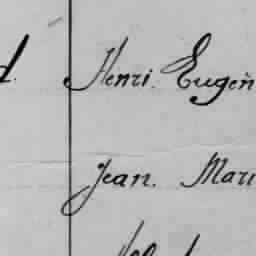 d. Henri. Eugèn
Jean. Mari